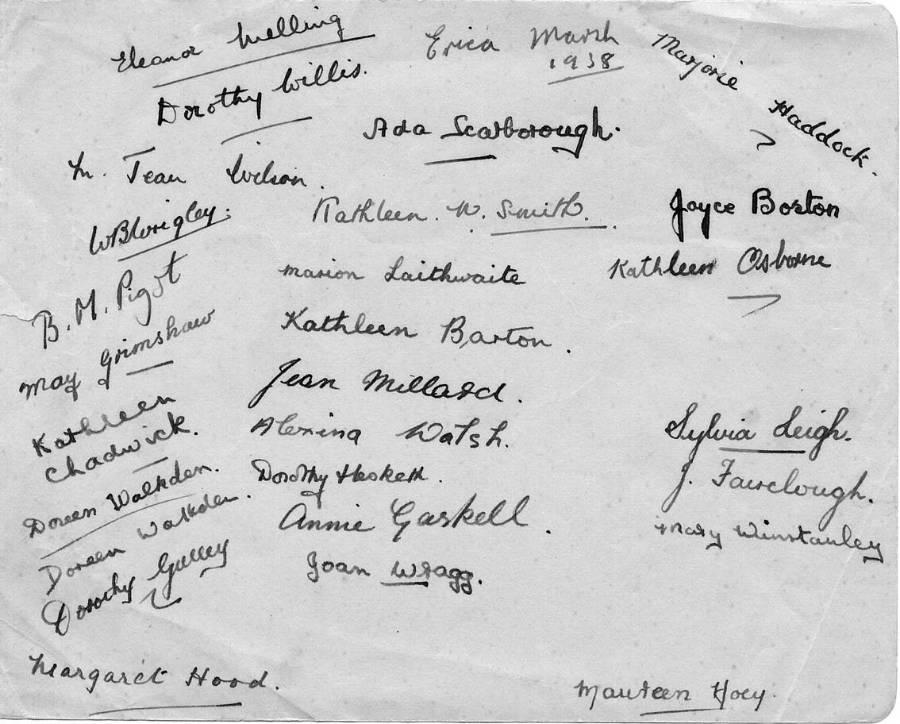 Eleanor Melling
Erica Marsh
1938
Marjorie Haddock.
Dorothy Willis.
Ada Scarborough.
M. Jean Wilson.
Kathleen. W. Smith.
Joyce Boston
WBWrigley.
Marion Laithwaite
Kathleen Osborne
B. M. Pigot
Kathleen Barton.
May Grimshaw
Jean Millard.
Kathleen
Chadwick.
Alexina Walsh.
Sylvia Leigh.
Doreen Walkden.
Dorothy Hesketh.
J. Fairclough.
Doreen Walkden.
Annie Gaskell.
Mary Winstanley
Dorothy Gulley
Joan Wragg.
Margaret Hood.
Maureen Hoey.